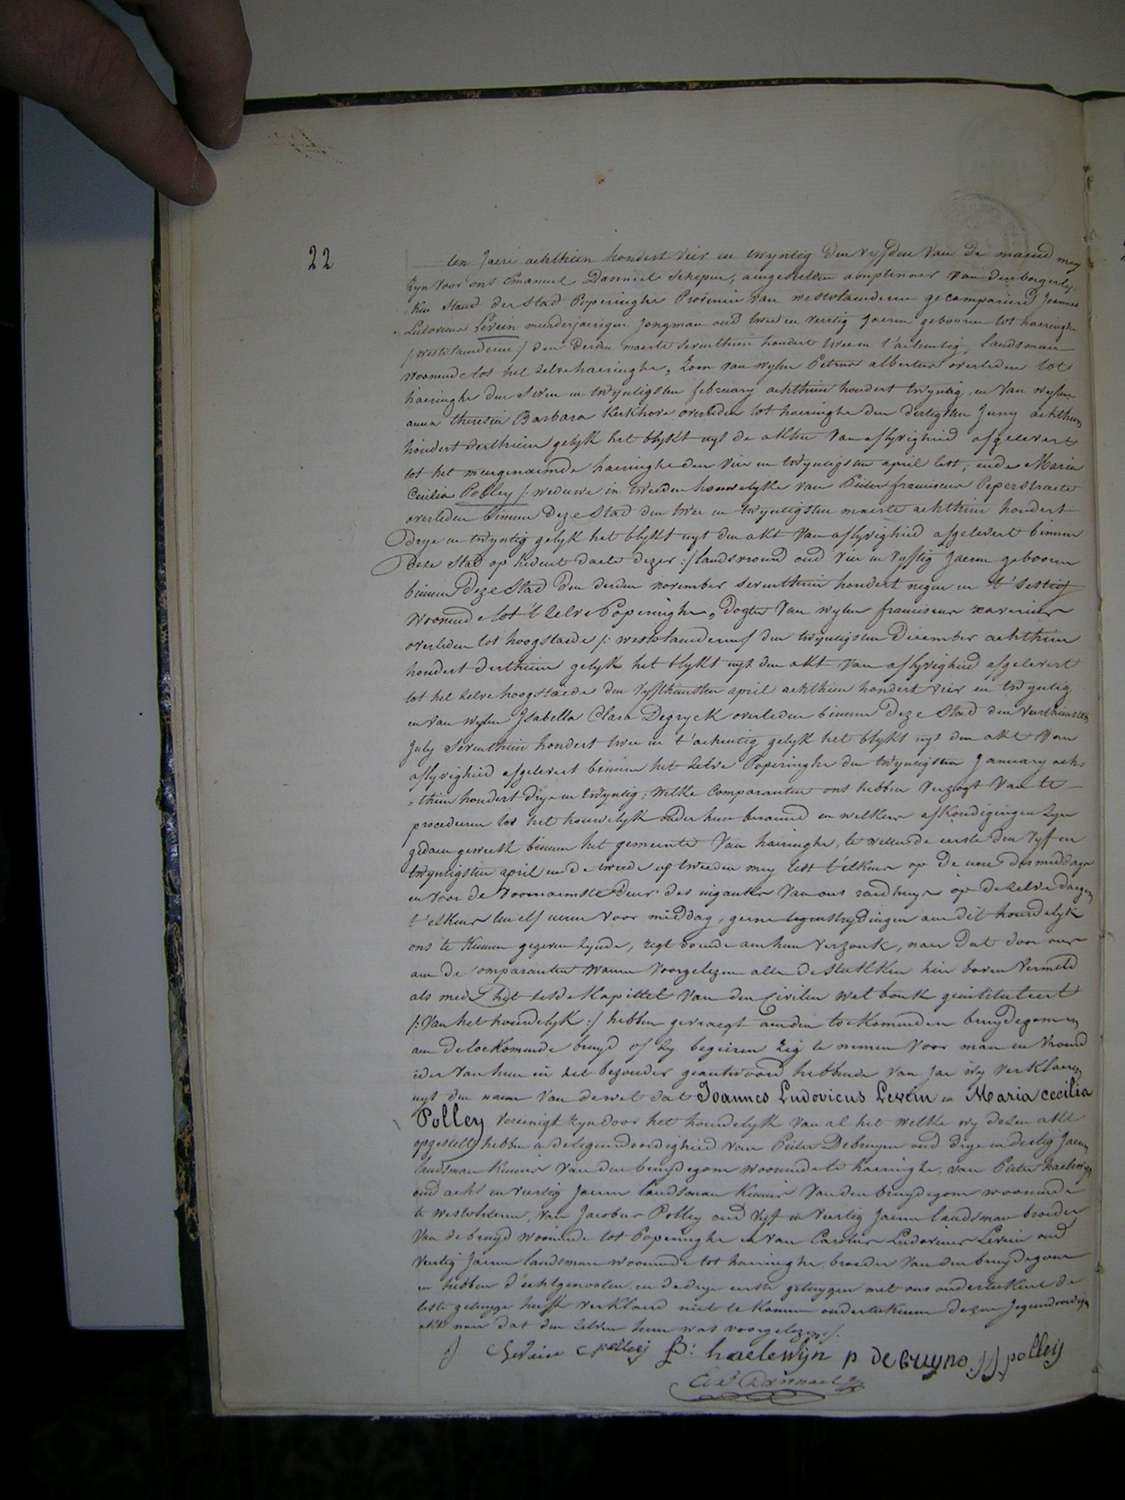 22
ten Jaere achthien hondert vier en twyntig den vyfden van de maend mey
zyn voor ons Emanuel Danneel schepen, aengestelden ampteneer van den borgerly-
ken stand der stad Poperinghe Provencie van westvlaenderen gecompareerd Joannes
Ludovicus Levein meerderjaerigen jongman oud twee en veertig jaeren gebooren tot haeringhe
/westvlaenderen/ den derden maerte seventhien hondert twee en t'achentig, landsman
woonende tot het zelve haeringhe, zoon van wylen Petrus albertus overleden tot
haeringhe den seven en twyntigsten february achthien hondert twyntig en van wylen
anna theresia Barbara Kerkhove overleden tot haeringhe den dertigsten juny achthien
hondert derthien gelyk het blykt uyt de akten van aflyvigheid afgelevert
tot het meergenaemde haeringhe den vier en twyntigsten april lest, ende Maria
Cecilia Polley /: weduwe in tweeden houwelyke van Pieter franciscus Peperstraete
overleden binnen deze stad den twee en twyntigsten maerte achthien hondert
drye en twyntig gelyk het blykt uyt den akt van aflyvigheid afgelevert binnen
deze stad op hedent daete dezer :/ landsvrouw oud vier en vyftig jaeren gebooren
binnen deze stad den derden november seventhien hondert negen en t'sestig
woonende tot t'zelve Poperinghe, dogter van wylen franciscus xaverius
overleden tot hoogstaede /: westvlaenderen/ den twyntigsten December achthien
hondert derthien gelyk het blykt uyt den akt van aflyvigheid afgelevert
tot het zelve hoogstaede den vyfthiensten april achthien hondert vier en twyntig
en van wylen Isabella Clara Degryck overleden binnen deze stad den veerthiensten
July seventhien hondert twee en t'achentig gelyk het blykt uyt den akt van
aflyvigheid afgelevert binnen het zelve Poperinghe den twyntigsten January ach-
thien hondert drye en twyntig; welke comparanten ons hebben verzogt van te
procederen tot het houwelyk onder hun beraemd en welkers afkondigingen zyn
gedaen geweest binnen het gemeente van haeringhe, te weten de eerste den vyf en
twyntigsten april en de tweede op tweeden mey lest t'elkens op de uere des middags
en voor de voornaemste deur des ingank van ons raedhuys op de zelve dagen
t'elkens ten elf ueren voor middag, geene tegenstrydingen aen dit houwelyk
ons te kennen gegeven zynde, regt doende aen hun verzoek, naer dat door ons
aen de comparanten waeren voorgelezen alle de stukken hier boven vermeld
als med het seste kapittel van den Civilen wetboek geintituleert
/: van het houwelyk :/ hebben gevraegt aen den toekomenden bruydegom en
aen de toekomende bruyd of zy begeeren zig te nemen voor man en vrouw
ider van hun in het bezonder geantwoord hebbende van jae wy verklaeren
uyt den naem van de wet dat Joannes Ludovicus Levein en Maria cecilia
Polley vereenigt zyn door het houwelyk van al het welke wy dezen akt
opgestelt hebben in de tegenwoordigheid van Pieter Debruyne oud drye en dertig jaeren
landsman kennis van den bruydegom woonende te haeringhe, van Pieter haelewyn
oud acht en veertig jaeren landsman kennis van den bruydegom woonende
te westvleteren, van Jacobus Polley oud vyf en veertig jaeren landsman broeder
van de bruyd woonende tot Poperinghe en van Carolus Ludovicus Levein oud
veertig jaeren landsman woonende tot haeringhe, broeder van den bruydegom
en hebben d'echtgenooten en de drye eerste getuygen met ons onderteekent de
leste getuyge heeft verklaerd niet te konnen onderteekenen dezen jegenwoordigen
akt naer dat den zelven hem was voorgelezen /.
j Levein C polley P: haelewijn p de bruyne J J polley